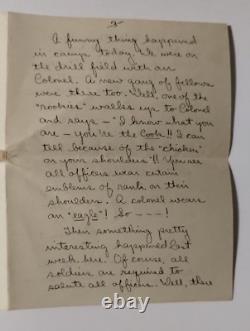 2
A funny thing happened
in camp today. We were on
the drill field with our
Colonel. A new gang of fellows
were there too. Well, one of the
"rookies" walks up to Colonel
and says - "I know what you
are - you're the Cook!! I can
tell because of the "chicken"
on your shoulders"!! You see
all officers wear certain
emblems of rank on their
shoulders. A colonel wears
an "eagle"! So ---!
Then something pretty
interesting happened last
week here. Of course, all
soldiers are required to
salute all officers. Well, there
ebay